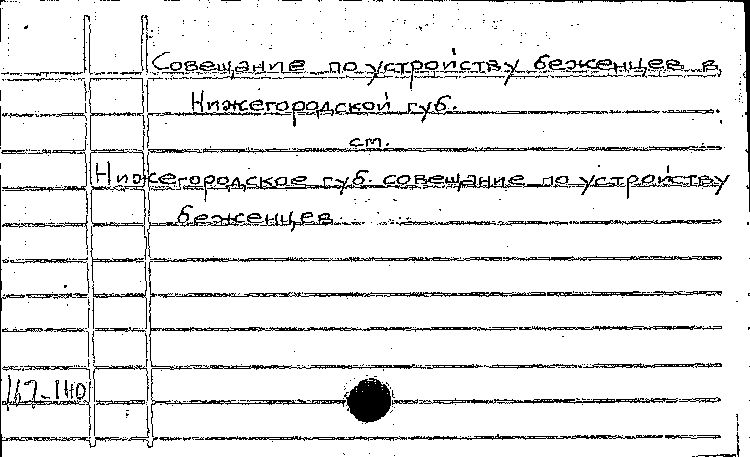 Совещание по устройству беженцев в
Нижегородской губ.
см.
Нижегородское губ. совещание по устройству
беженцев